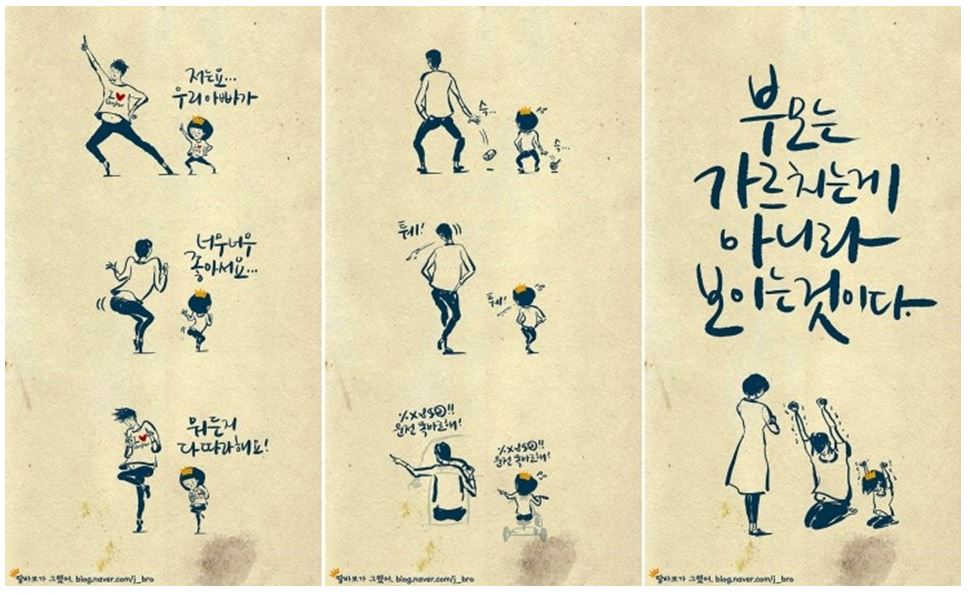 I ♥
daughter
저는요...
우리아빠가
너무너무
좋아서요...
I ♥
daughter
뭐든지
다따라해요!
딸바보가 그렸어. blog.naver.com/j_bro
슥...
슥...
퉤!
퉤!
%X&$@!!
운전 똑바로해!
%X&$@!!
운전 똑바로해!
딸바보가 그렸어. blog.naver.com/j_bro
부모는
가르치는게
아니라
보이는것이다.
딸바보가 그렸어. blog.naver.com/j_bro